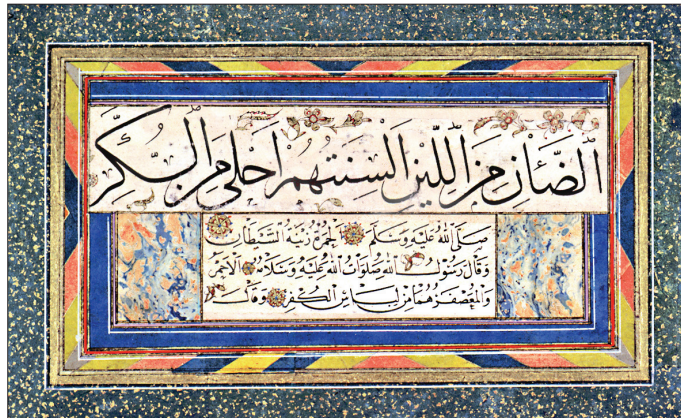 الضَّأْنِ مِنَ اللِّينِ اَلْسِنَتُهُمْ اَحْلٰى مِنَ السُّكَّرِ
صَلَّى اللهُ عَلَيْهِ وَسَلَّمَ اَلْحُمْرَةُ زِينَةُ الشَّيْطَانِ
وَقَالَ رَسُولُ اللهِ صَلَوَاتُ اللهِ عَلَيْهِ وَسَلَامُهُ اَلْاَحْمَرُ
وَالْمُعَصْفَرُ هُمَا مِنْ لِبَاسِ الْكُفْرِ وَقَالَ